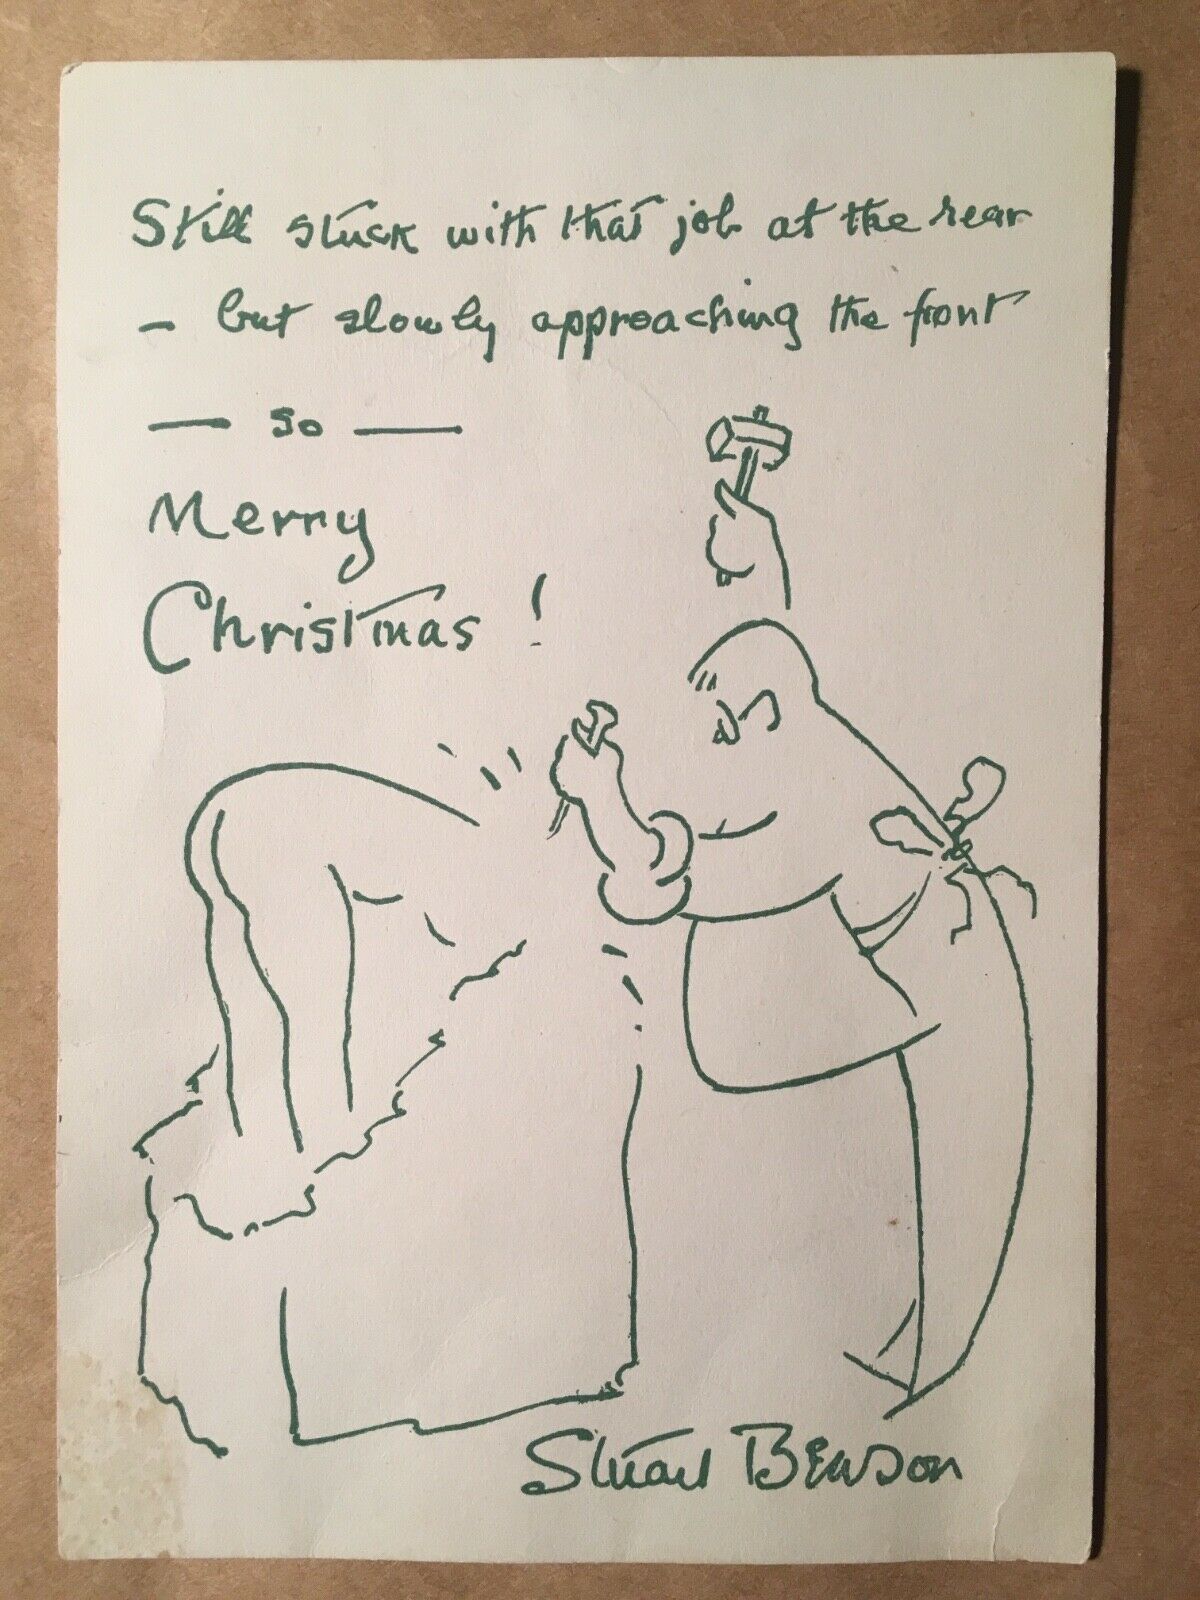 Still stuck with that job at the rear
- but slowly approaching the front
— so —
Merry
Christmas !
Stuart Benson